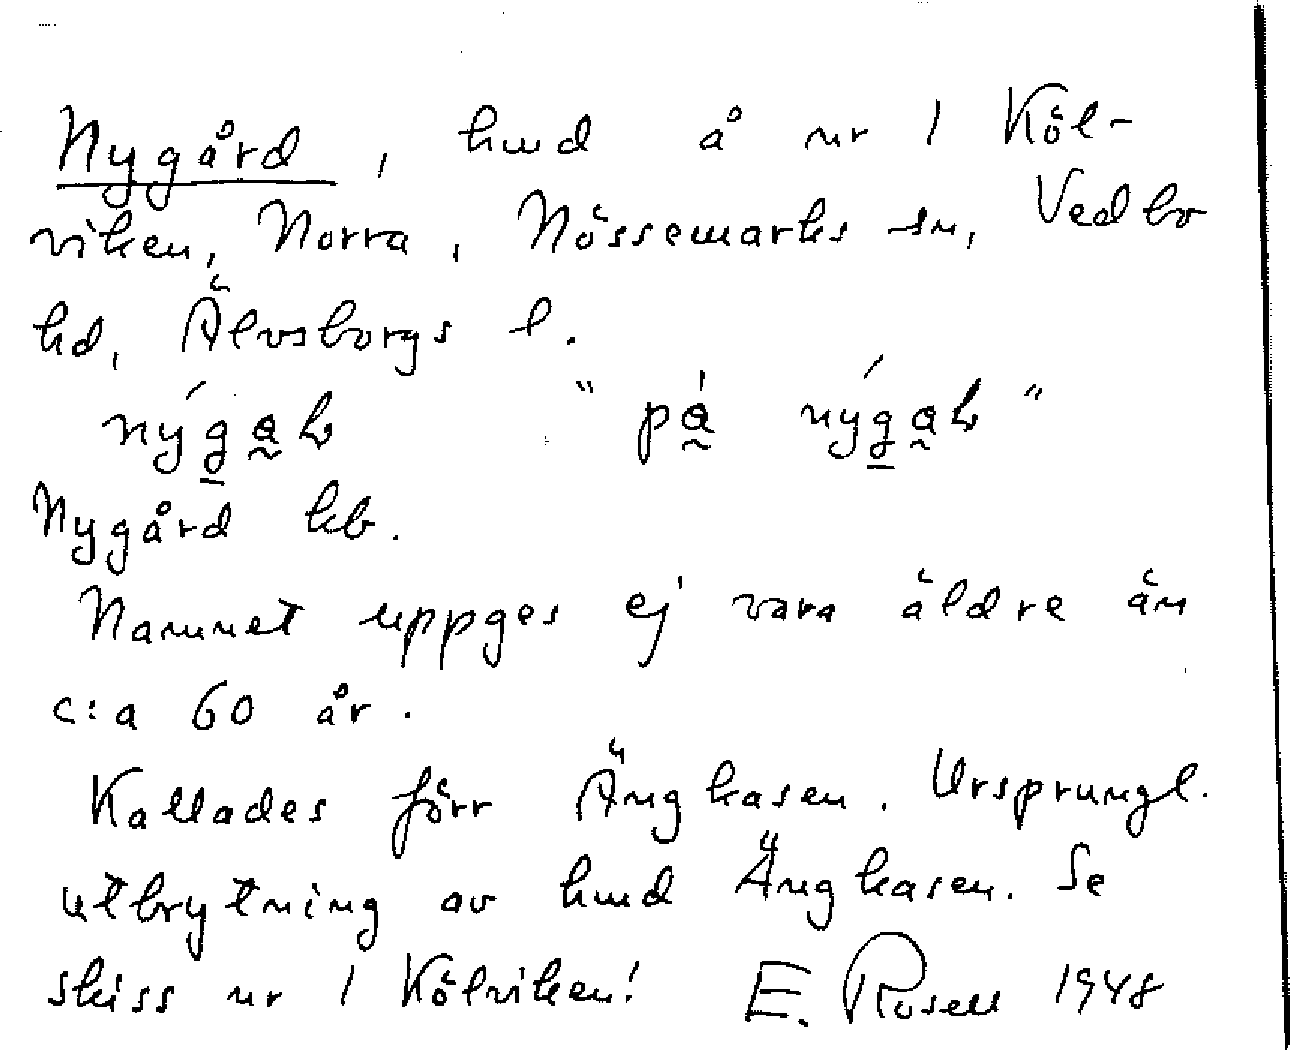 Nygård, hmd å nr 1 Köl-
viken, Norra, Nössemarks sn, Vedbo
hd, Älvsborgs l.
nýga̰ḷ " på̰ nýga̰ḷ "
Nygård kb.
Namnet uppges ej vara äldre än
c:a 60 år.
Kallades förr Änghasen. Ursprungl.
utbrytning av hmd Änghasen. Se
skiss nr 1 Kölviken! E. Rosell 1948